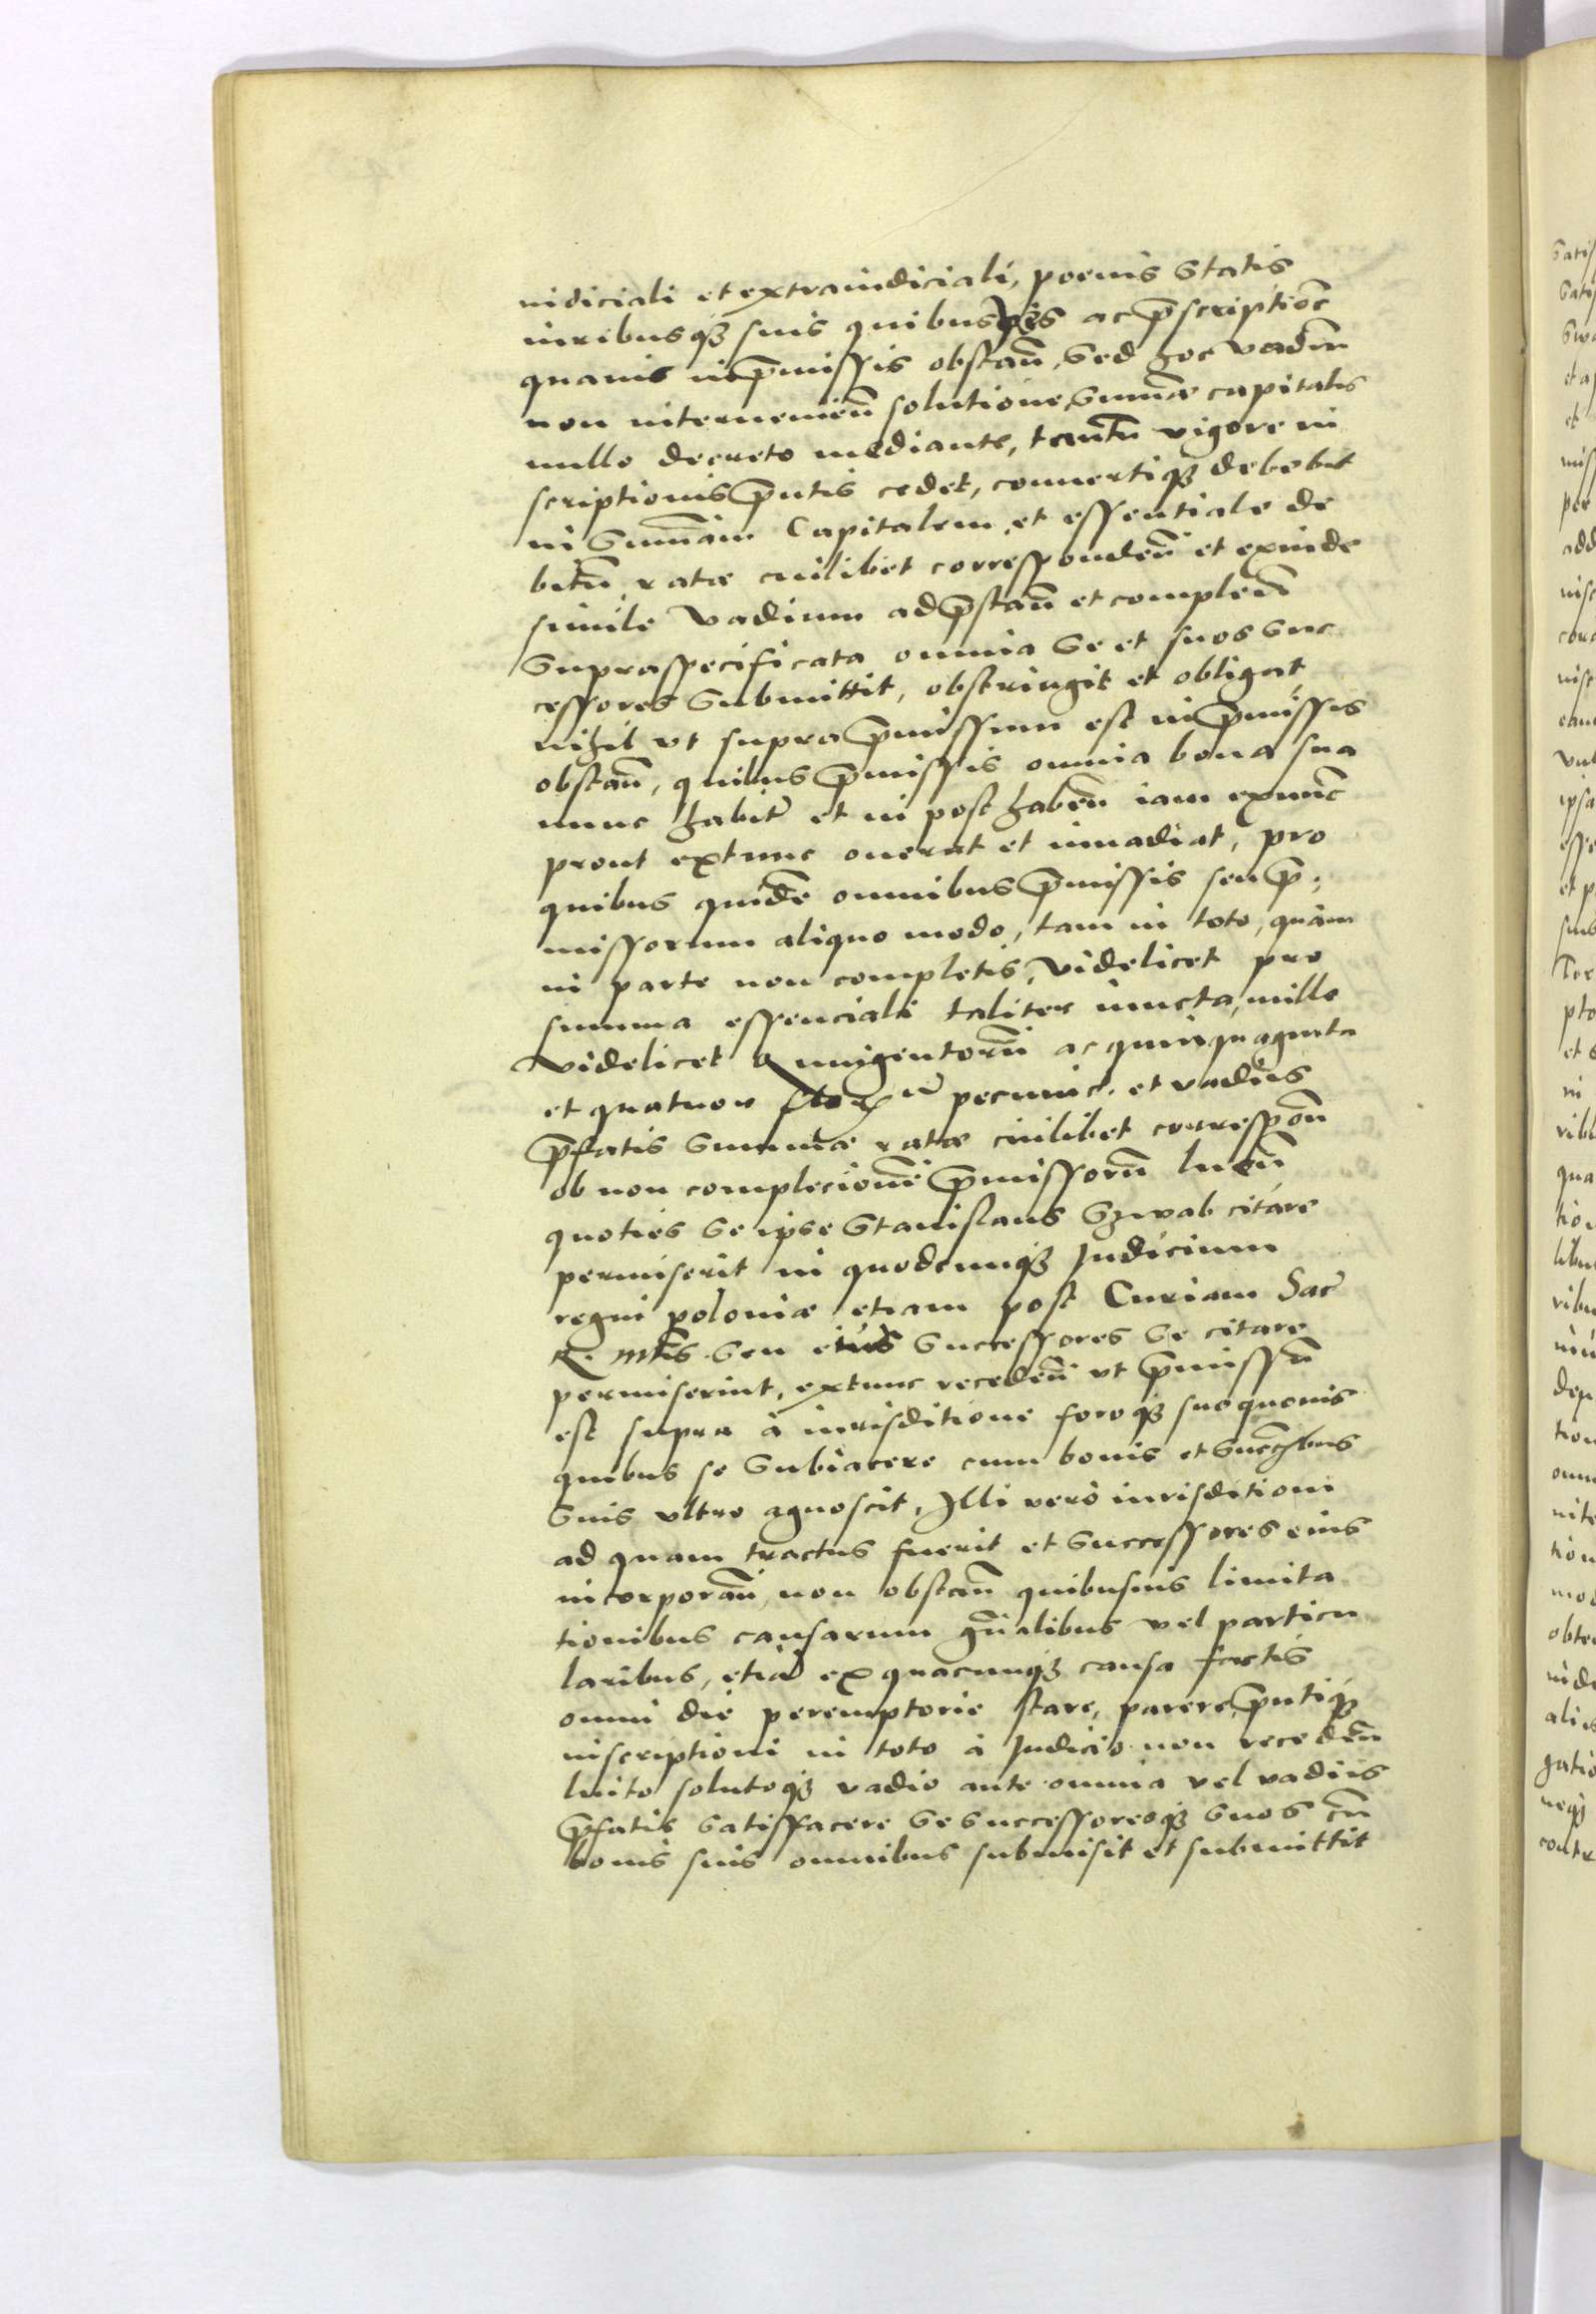 iudiciali et extraiudiciali, poenis Statis
iuribusq3 suis quibusvis ac p̄scriptiōe
quavis in p̄missis obstan̄, Sed hoc vadiū
non intervenien̄ solutione Summæ capitalis
nullo decreto mediante, tantū vigore in
scriptionis p̄ntis cedet, convertiq3 debebit
in Summam Capitalem et essentiale de
bitū, ratæ cuilibet corresponden̄ et exinde
simile vadium ad p̄stan̄ et complen̄
Supraspecificata omnia Se et suos Suc
cessores Submittit, obstringit et obligat
nihil vt supra p̄missum est in p̄missis
obstan̄, quibus p̄missis omnia bona sua
nunc habita et in post haben̄ iam exnūc
prout extunc onerat et invadiat, pro
quibus quidē omnibus p̄missis seu p̄,
missorum aliquo modo, tam in toto, quam
in parte non completis, videlicet pro
summa essenciali taliter iuncta, mille
videlicet Quingentorū ac quinquaginta
et quatuor pecuniæ. et vadiis
p̄fatis Summæ ratæ cuilibet correspon̄
ob non complecionē p̄missorū luen̄
quoties Se ipse Stanislaus Szwab citare
permiserit in quodcunq3 Judicium
regni poloniæ etiam post Curiam Sac̄
R. Mtis Seu eius Successores Se citare
permiserint, extunc receden̄ vt p̄missū
est supra à iurisditione foroq3 suo quovis
quibus se Subiacere cum bonis et Succ̄ribus
Suis vltro agnoscit, Illi verò iurisditioni
ad quam tractus fuerit et Successores eius
incorporan̄, non obstan̄ quibusvis limita
tionibus causarum gn̄alibus vel particu
laribus, etiā ex quacunq3 causa factis
omni die peremptorie stare, parere, p̄ntiq3
inscriptioni in toto à Judicio non receden̄
luito solutoq3 vadio ante omnia vel vadiis
p̄fatis Satisfacere Se Successoresq3 Suos cū
bonis suis omnibus submisit et submittit